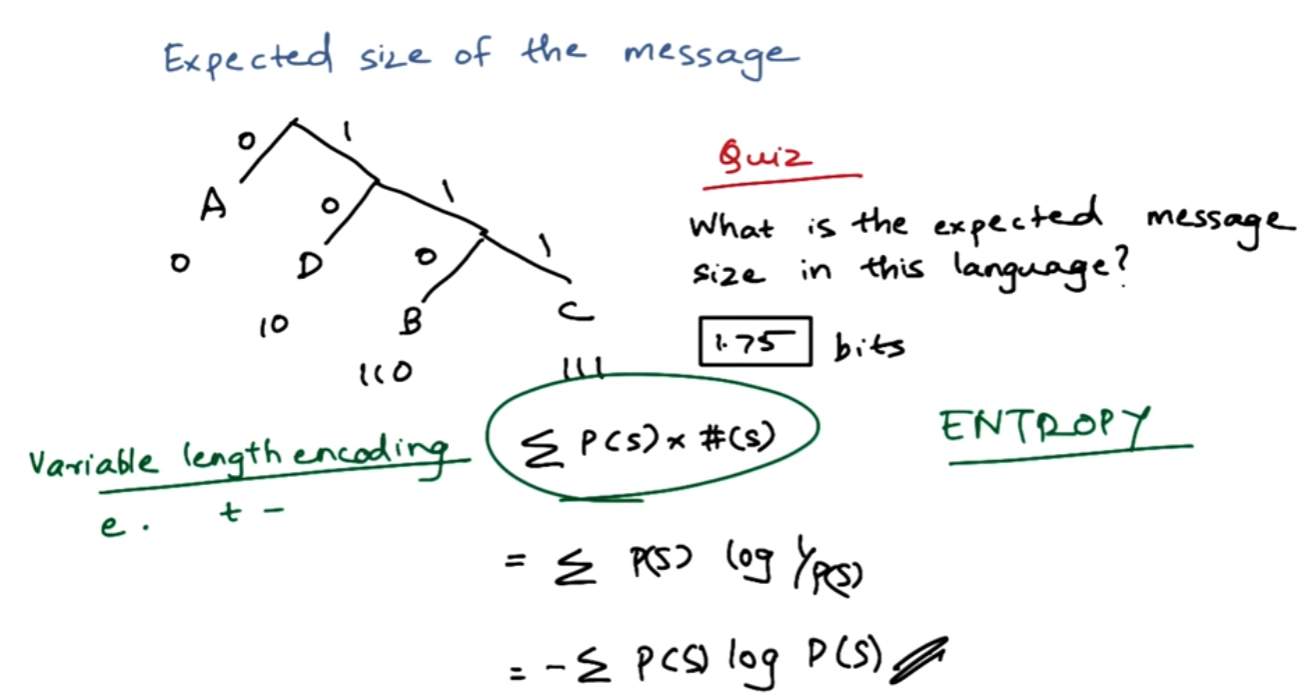 Expected size of the message
0 1
A 0 1
0 D 0 1
10 B C
110 111
Quiz
What is the expected message
size in this language?
1.75 bits
Variable length encoding
e . t -
∑ P(s) × #(s)
ENTROPY
= ∑ P(s) log 1/P(s)
= - ∑ P(s) log P(s)